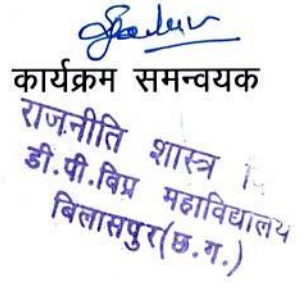 कार्यक्रम समन्वयक
राजनीति शास्त्र
डी.पी.विप्र महाविद्यालय
बिलासपुर(छ.ग.)